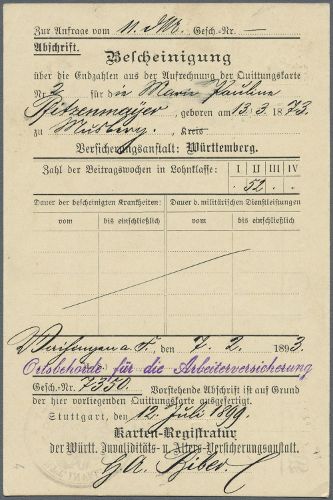 Zur Anfrage vom 11. d. Mts. Gesch.-Nr. —
Abschrift.
Bescheinigung
über die Endzahlen aus der Aufrechnung der Quittungskarte
Nr. 2 für die Marie Pauline
Pfitzenmayer, geboren am 13. 3. 1873.
zu Musberg, Kreis
Versicherungsanstalt: Württemberg.
Zahl der Beitragswochen in Lohnklasse: I II III IV
. 52. . .
Dauer der bescheinigten Krankheiten: Dauer d. militärischen Dienstleistungen
vom bis einschließlich vom bis einschließlich
Vaihingen a. F., den 7. 2. 1893.
Ortsbehörde für die Arbeiterversicherung
Gesch.-Nr. 7350. Vorstehende Abschrift ist auf Grund
der hier vorliegenden Quittungskarte ausgefertigt.
Stuttgart, den 12. Juli 1899.
Karten-Registratur
der Württ. Invaliditäts- u. Alters-Versicherungsanstalt.